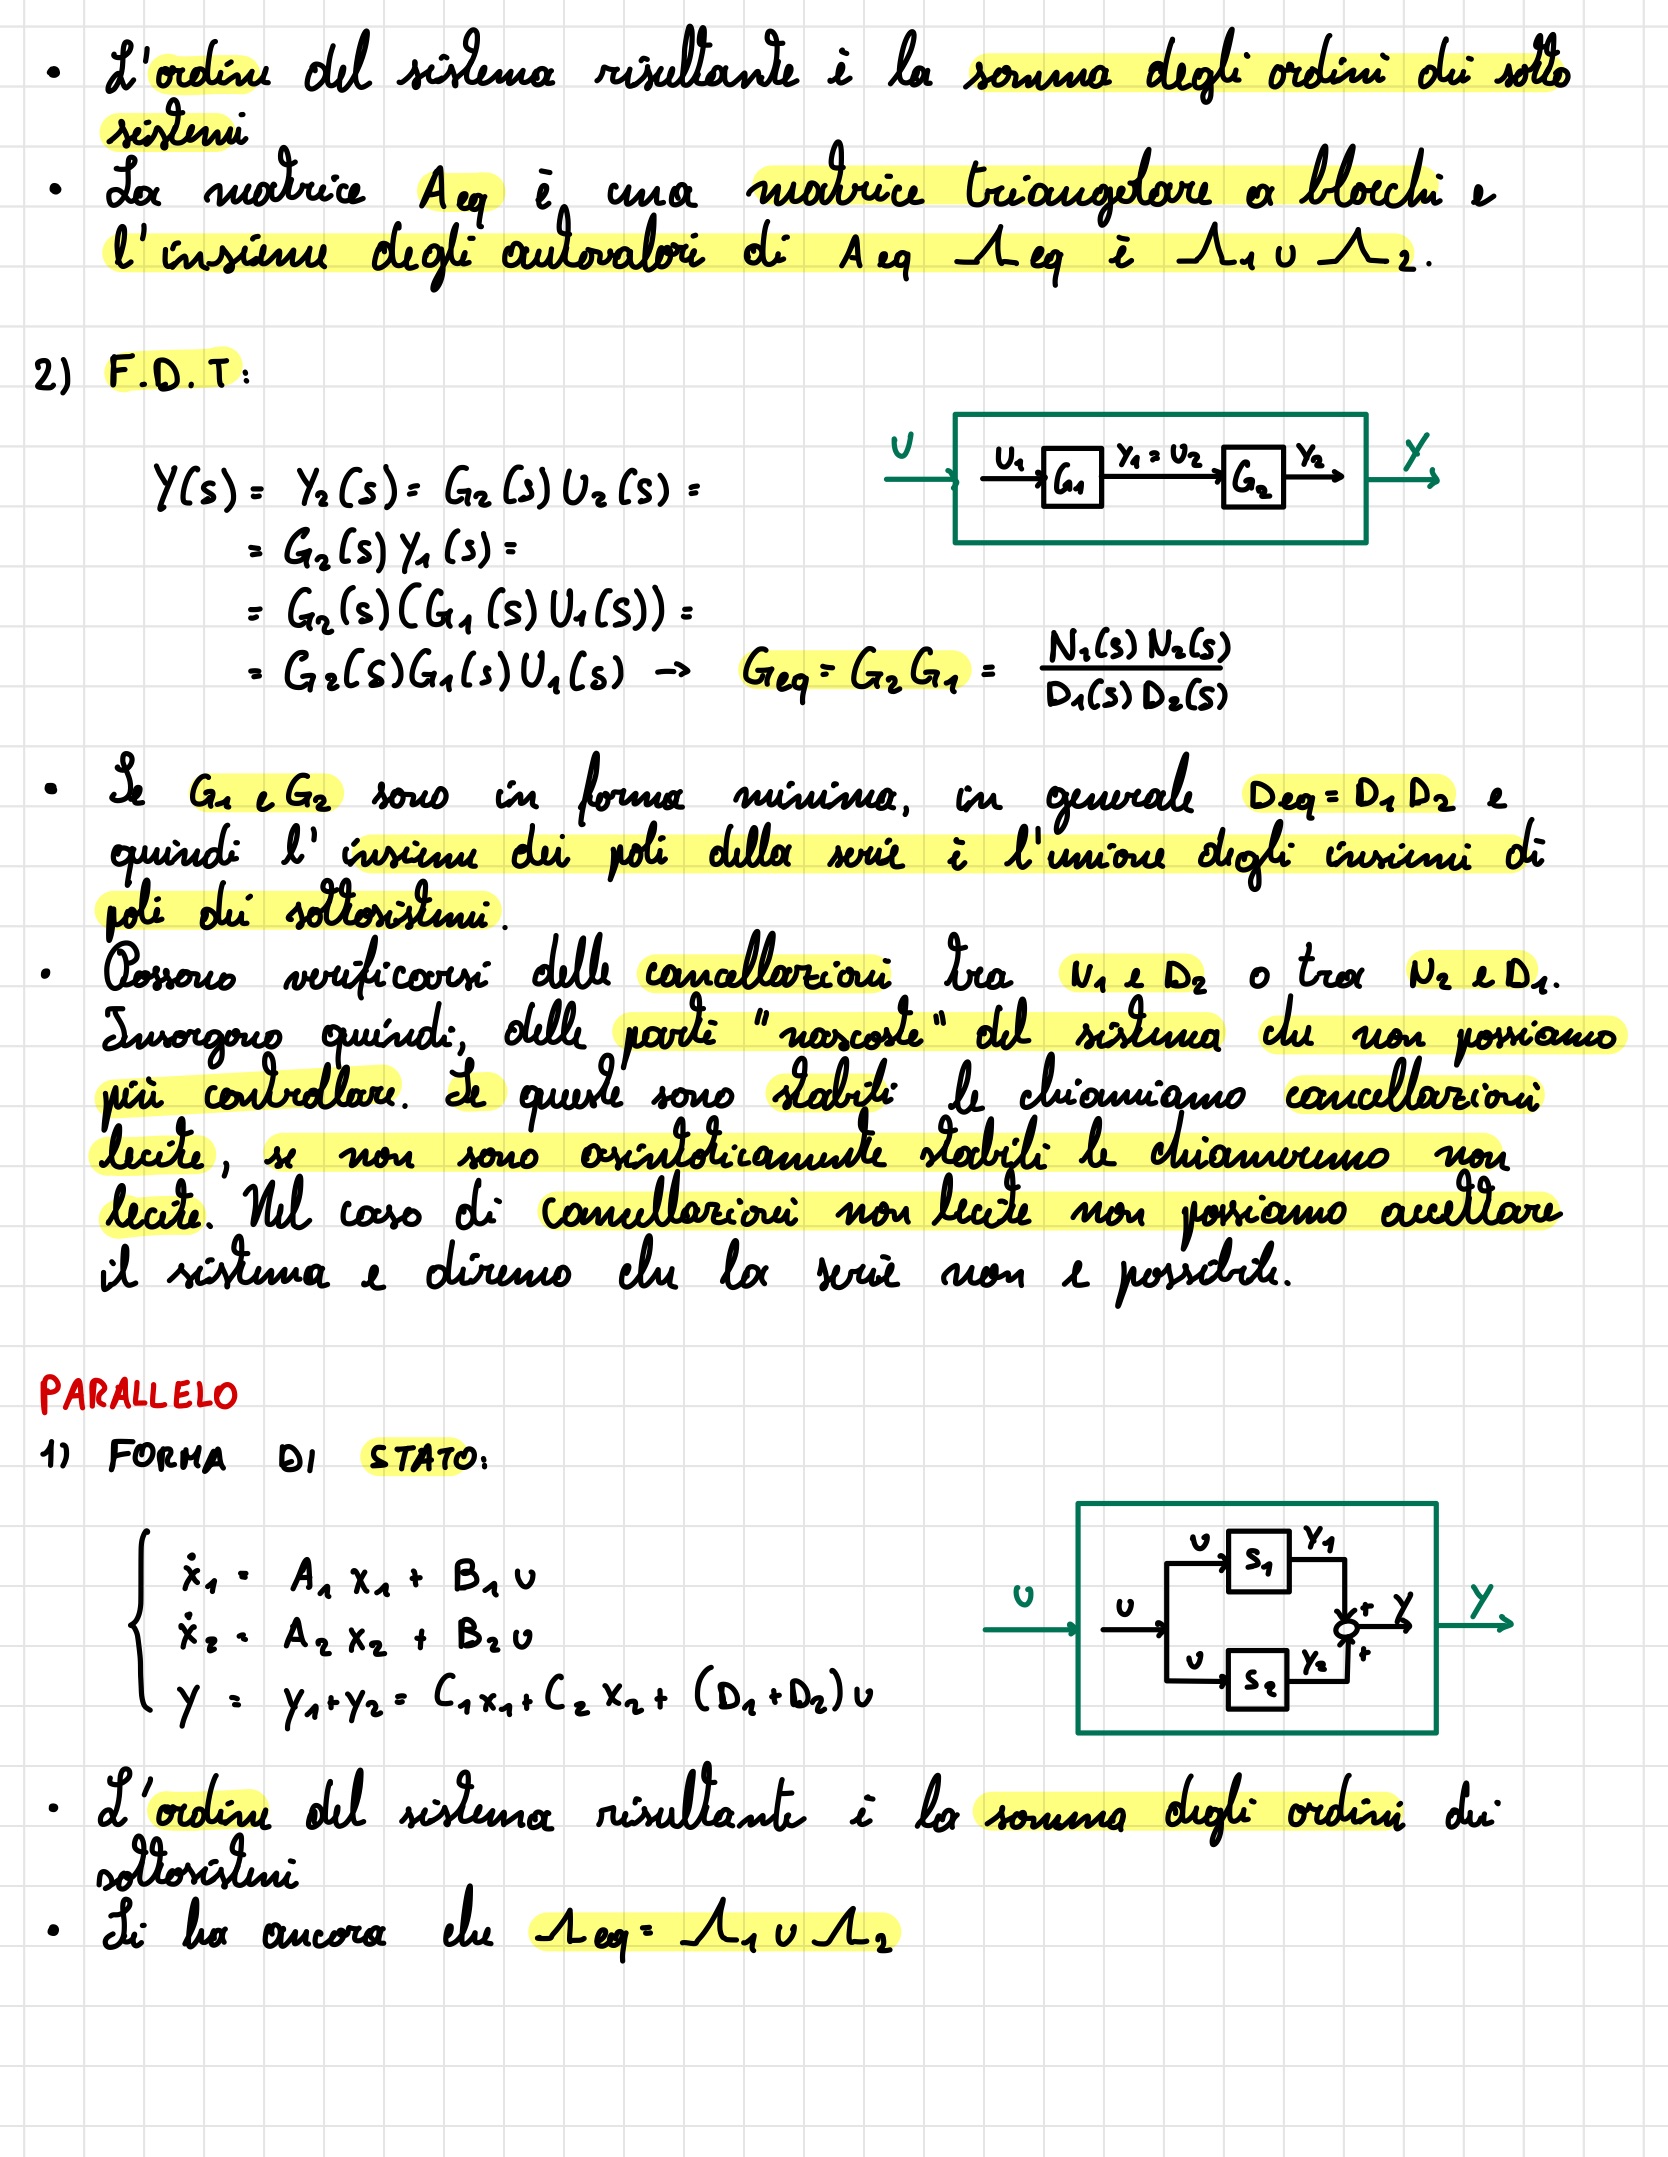 • L'ordine del sistema risultante è la somma degli ordini dei sotto
sistemi
• La matrice Aeq è una matrice triangolare a blocchi e
l'insieme degli autovalori di Aeq Λeq è Λ1 ∪ Λ2.
2) F.D.T:
U
U1
G1
Y1 = U2
G2
Y2
Y
Y(s) = Y2(s) = G2(s) U2(s) =
= G2(s) Y1(s) =
= G2(s)(G1(s) U1(s)) =
= G2(s)G1(s) U1(s) → Geq = G2 G1 = N1(s) N2(s) / D1(s) D2(s)
• Se G1 e G2 sono in forma minima, in generale Deq = D1 D2 e
quindi l'insieme dei poli della serie è l'unione degli insiemi di
poli dei sottosistemi.
• Possono verificarsi delle cancellazioni tra N1 e D2 o tra N2 e D1.
Insorgono quindi, delle parti "nascoste" del sistema che non possiamo
più controllare. Se queste sono stabili le chiamiamo cancellazioni
lecite, se non sono asintoticamente stabili le chiameremo non
lecite. Nel caso di cancellazioni non lecite non possiamo accettare
il sistema e diremo che la serie non e possibile.
PARALLELO
1) FORMA DI STATO:
ẋ1 = A1 x1 + B1 u
ẋ2 = A2 x2 + B2 u
y = y1+y2 = C1 x1 + C2 x2 + (D1+D2) u
U
U
U
S1
Y1
U
S2
Y2
+
+
Y
Y
• L'ordine del sistema risultante è la somma degli ordini dei
sottosistemi
• Si ha ancora che Λeq = Λ1 ∪ Λ2